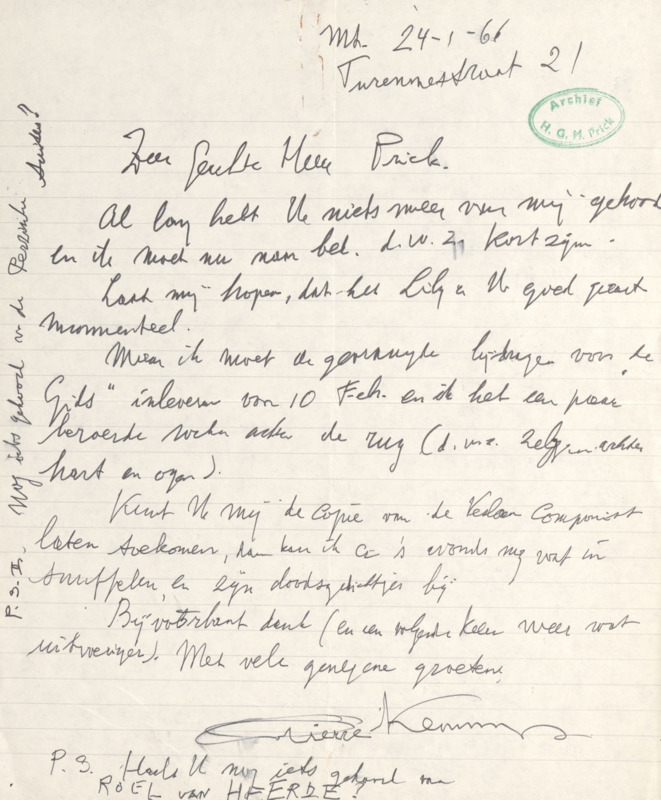 Mt. 24-1-66
Turennestraat 21
Archief
H. G. M. Prick
Zeer Geachte Heer Prick.
Al lang hebt U niets meer van mij gehoord
en ik moet nu naar bed. d.w.z. kort zijn.
Laat mij hopen, dat het Lily en U goed gaat
momenteel.
Maar ik moet de gevraagde bijdragen voor "de
Gids" inleveren voor 10 Feb. en ik heb een paar
beroerde weken achter de rug (d.w.z.
hart en ogen).
Kunt U mij de copie van de componist
laten toekomen, dan kan ik er 's avonds nog wat in
snuffelen, en zijn doodsgedichtjes bij
Bij voorbaat dank (en een volgende keer weer wat
uitvoeriger). Met vele genegene groeten,
Pierre Kemp
P.S. Hadt U nog iets gehoord van
ROEL VAN HEERDE?
P.S. II. Nog iets gehoord v. de Perzische